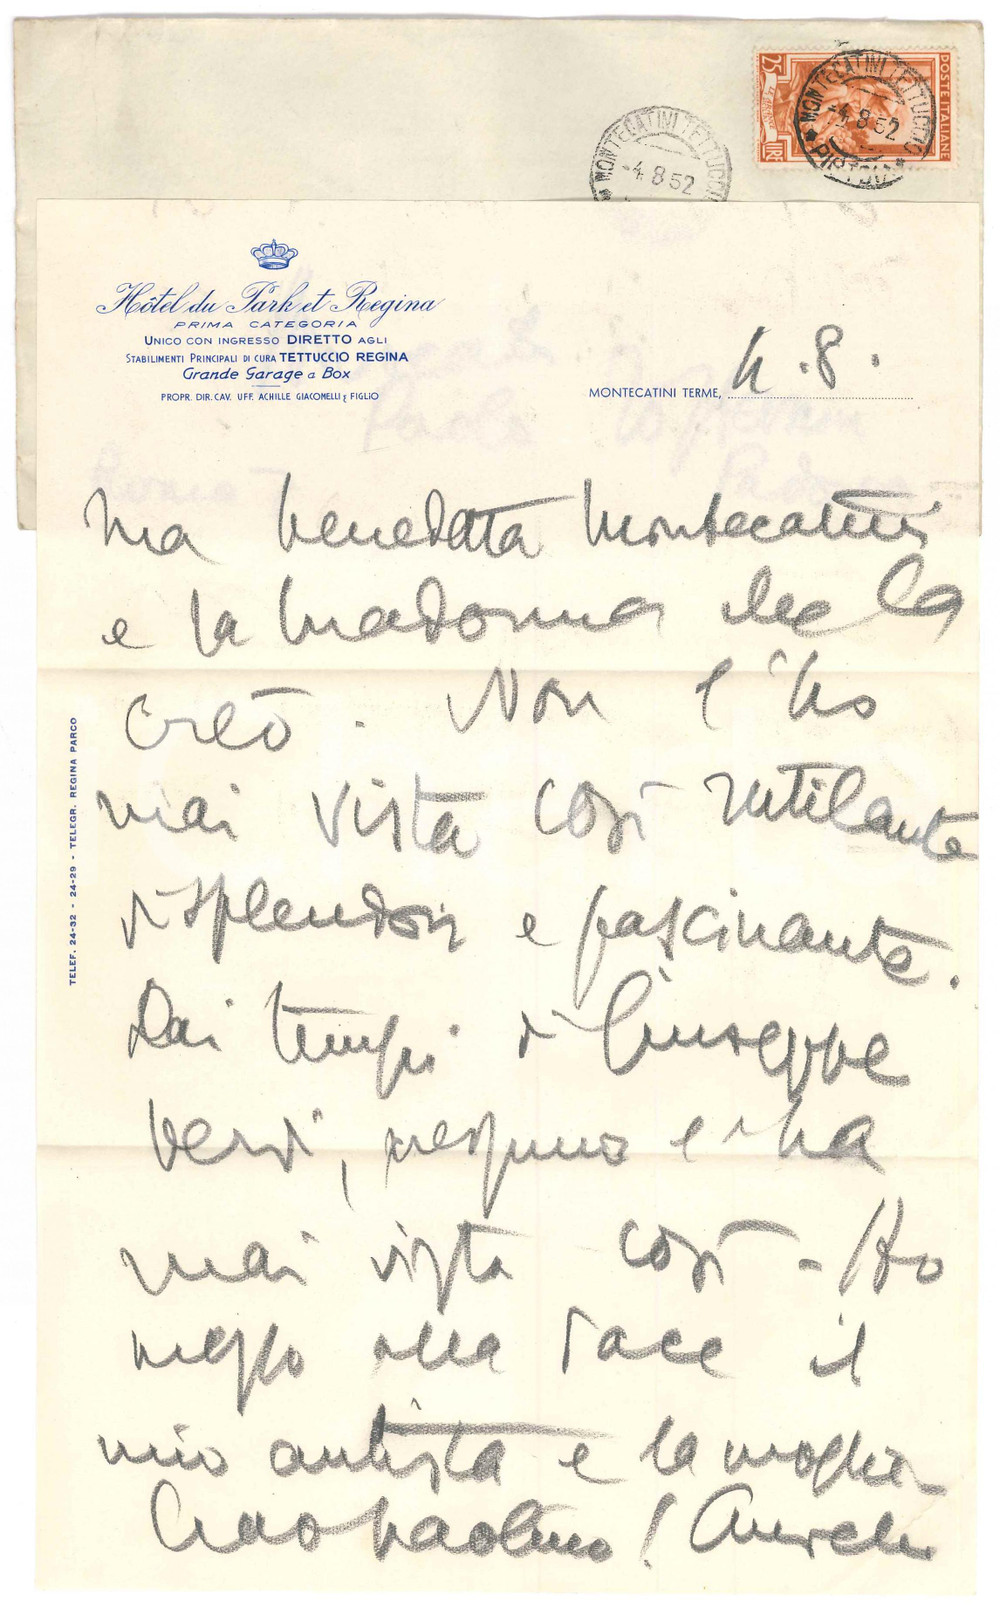 POSTE ITALIANE
25 LIRE
MONTECATINI TETTUCCIO
-4.8.52
MONTECATINI TETTUCCIO
-4.8.52
Hôtel du Park et Regina
PRIMA CATEGORIA
UNICO CON INGRESSO DIRETTO AGLI
STABILIMENTI PRINCIPALI DI CURA TETTUCCIO REGINA
Grande Garage a Box
PROPR. DIR. CAV. UFF. ACHILLE GIACOMELLI E FIGLIO
MONTECATINI TERME, 4.8.
TELEF. 24-32 - 24-29 - TELEGR. REGINA PARCO
Ma benedetta Montecatini
e la Madonna che la
creò. Non l'ho
mai vista così rutilante
di splendori e fascinante.
Dai tempi di Giuseppe
Verdi, nessuno l'ha
mai vista così - Ho
messo alla luce il
mio autista e la moglie
Ciao Paolino!